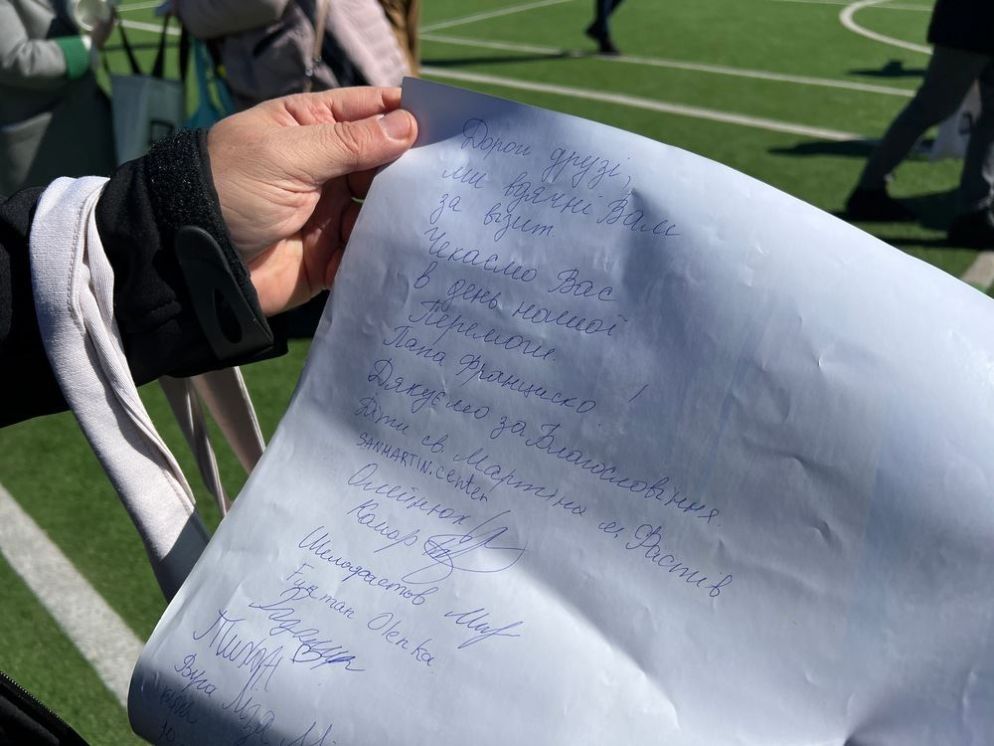 Дорогі друзі,
ми вдячні Вам
за візит.
Чекаємо Вас
в день нашої
Перемоги.
Папа Франциско !
Дякуємо за Благословіння.
Діти св. Мартіна м. Фастів
SANMARTIN.center
Олейнюк
Комар
Шелофастов Мир
Furman Olenka
Вуга